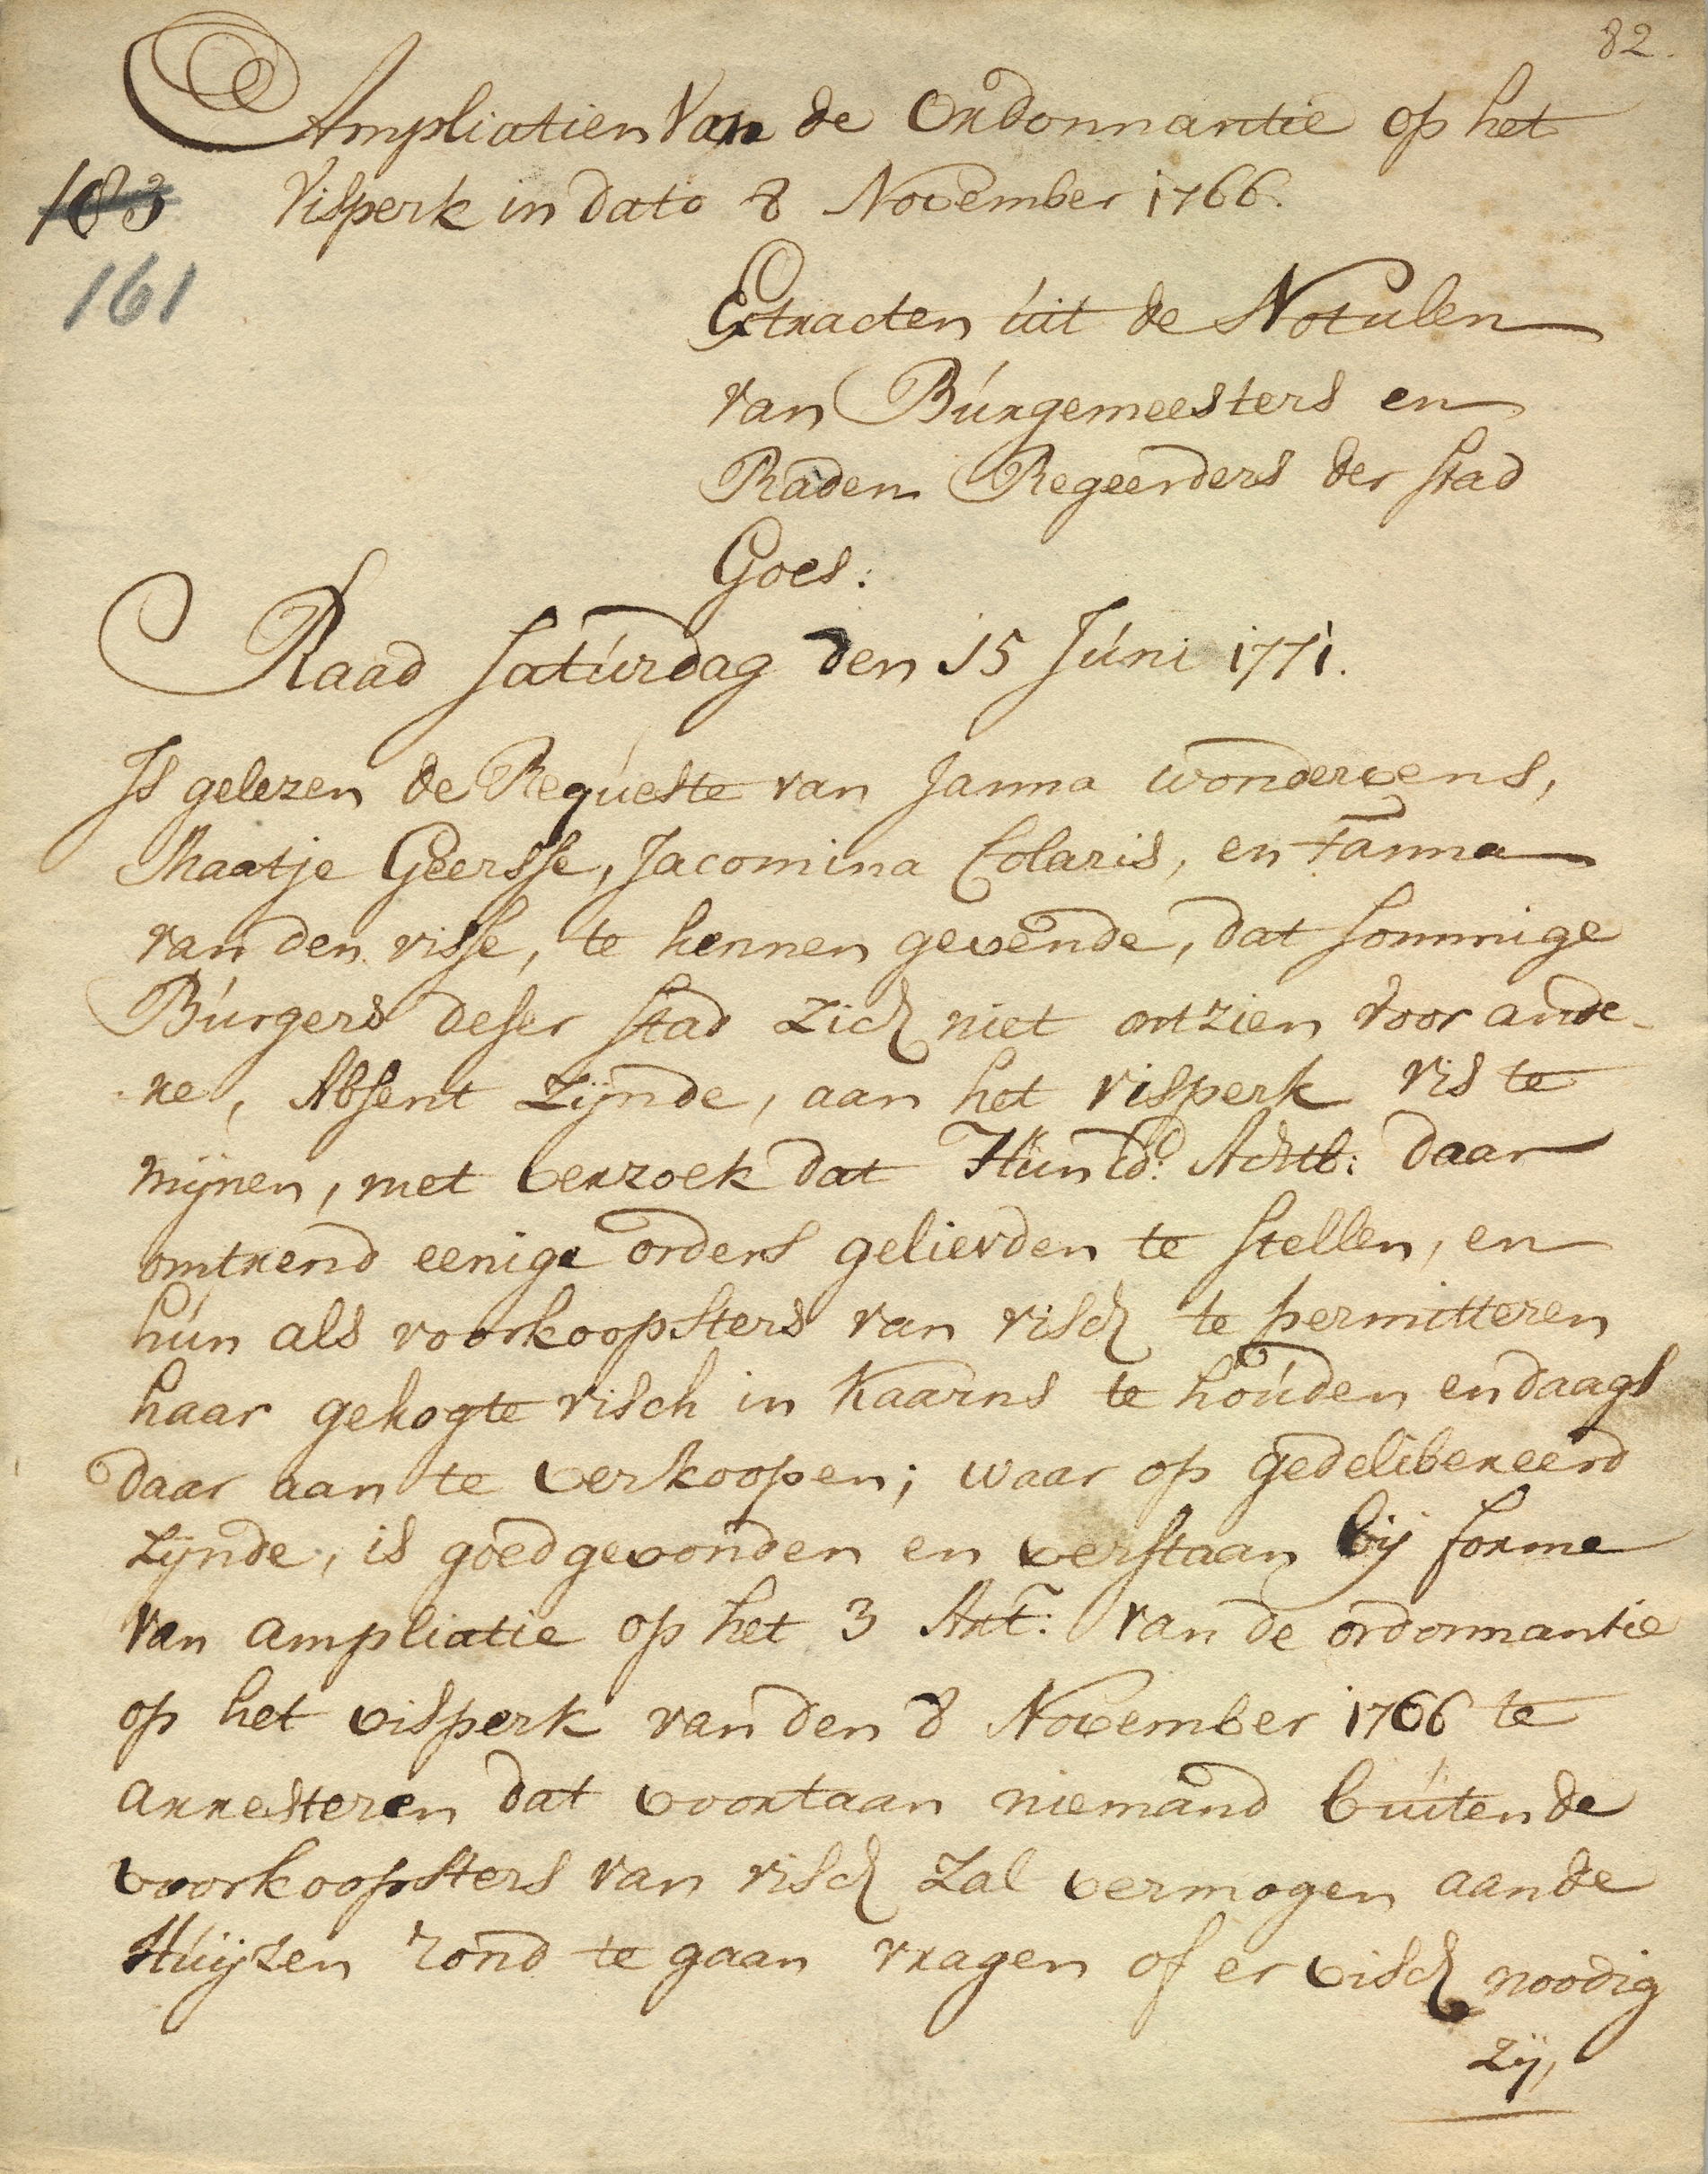 82.
Ampliatien van de Ordonnantie op het
183 Visperk in dato 8 November 1766.
161
Extracten uit de Notulen
van Burgemeesters en
Raden Regeerders der stad
Goes:
Raad saturdag den 15 Juni 1771.
Is gelezen de Requeste van Janna wondervens,
Maatje Geersse, Jacomina Colaris, en Tanna
van den visse, te kennen gevende, dat sommige
Burgers deser stad zich niet ontzien voor ande-
re, Absent zijnde, aan het visperk vis te
mijnen, met verzoek dat Hun Ed: Achtb: daar
omtrend eenige orders gelievden te stellen, en
hun als voorkoopsters van visch te permitteren
haar gekogte visch in Kaarns te houden en daags
daar aan te verkoopen; waar op gedelibereerd
zijnde, is goedgevonden en verstaan bij forme
van ampliatie op het 3 Art: van de ordonnantie
op het visperk van den 8 November 1766 te
arresteren dat voortaan niemand buiten de
voorkoopsters van visch zal vermogen aan de
Huijzen rond te gaan vragen of er visch noodig
zij,